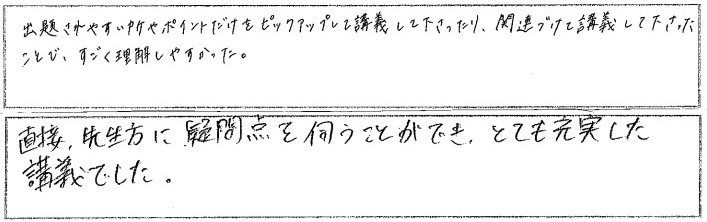 出題されやすい所やポイントだけをピックアップして講義して下さったり、関連づけて講義して下さった
ことで、すごく理解しやすかった。
直接、先生方に疑問点を伺うことができ、とても充実した
講義でした。